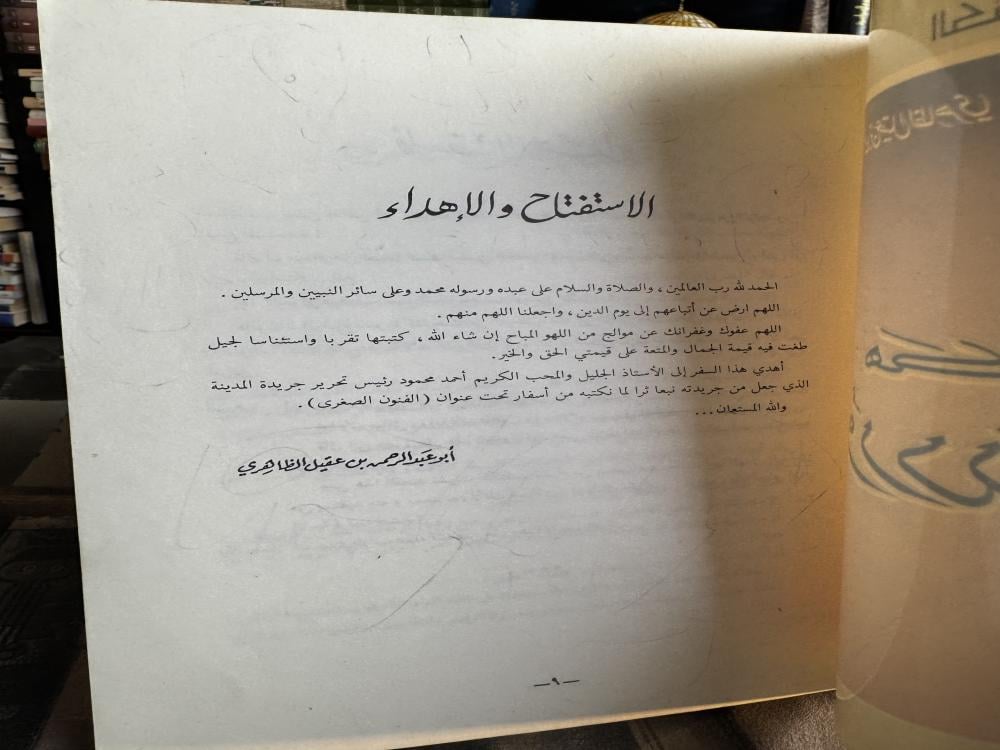 الاستفتاح والإهداء
الحمد لله رب العالمين ، والصلاة والسلام على عبده ورسوله محمد وعلى سائر النبيين والمرسلين .
اللهم ارض عن أتباعهم إلى يوم الدين ، واجعلنا اللهم منهم .
اللهم عفوك وغفرانك عن موالج من اللهو المباح إن شاء الله ، كتبتها تقربا واستئناسا لجيل
طغت فيه قيمة الجمال والمتعة على قيمتي الحق والخير .
أهدي هذا السفر إلى الأستاذ الجليل والمحب الكريم أحمد محمود رئيس تحرير جريدة المدينة
الذي جعل من جريدته نبعا ثرا لما نكتبه من أسفار تحت عنوان ( الفنون الصغرى ) .
والله المستعان ...
أبو عبد الرحمن بن عقيل الظاهري
— ٩ —